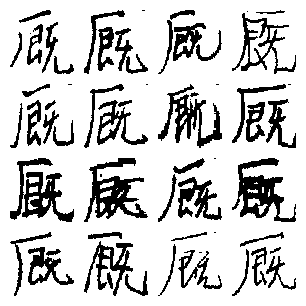 厩厩厩厩
厩厩厩厩
厩厩厩厩
厩厩厩厩